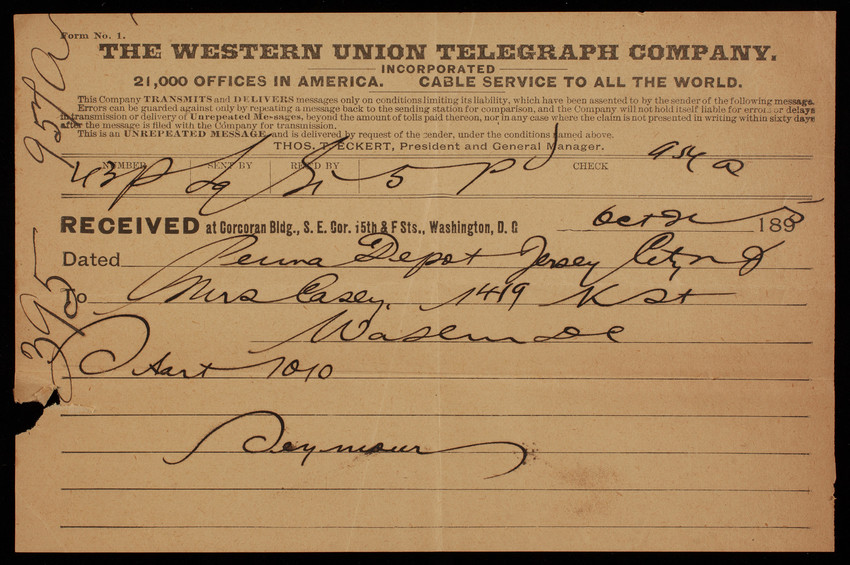 Form No. 1.
THE WESTERN UNION TELEGRAPH COMPANY.
INCORPORATED
21,000 OFFICES IN AMERICA. CABLE SERVICE TO ALL THE WORLD.
This Company TRANSMITS and DELIVERS messages only on conditions limiting its liability, which have been assented to by the sender of the following message.
Errors can be guarded against only by repeating a message back to the sending station for comparison, and the Company will not hold itself liable for errors or delays
in transmission or delivery of Unrepeated Messages, beyond the amount of tolls paid thereon, nor in any case where the claim is not presented in writing within sixty days
after the message is filed with the Company for transmission.
This is an UNREPEATED MESSAGE and is delivered by request of the sender, under the conditions named above.
THOS. T. ECKERT, President and General Manager.
NUMBER SENT BY REC'D BY CHECK
43 5 P 954 a
RECEIVED at Corcoran Bldg., S. E. Cor. 15th & F Sts., Washington, D. C. Oct 21 1895
Dated Penna Depot Jersey City NJ
To Mrs Casey. 1419 K St
Washn DC
Start 1010
Seymour
395 957a